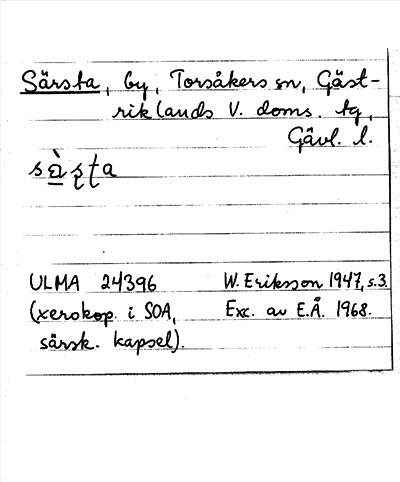 Särsta, by, Torsåkers sn, Gäst-
riklands V. doms. tg,
Gävl. l.
sä̀ṣṭa
ULMA 24396 W. Eriksson 1947, s. 3.
(xerokop. i SOA, Exc. av E.Å. 1968.
särsk. kapsel).